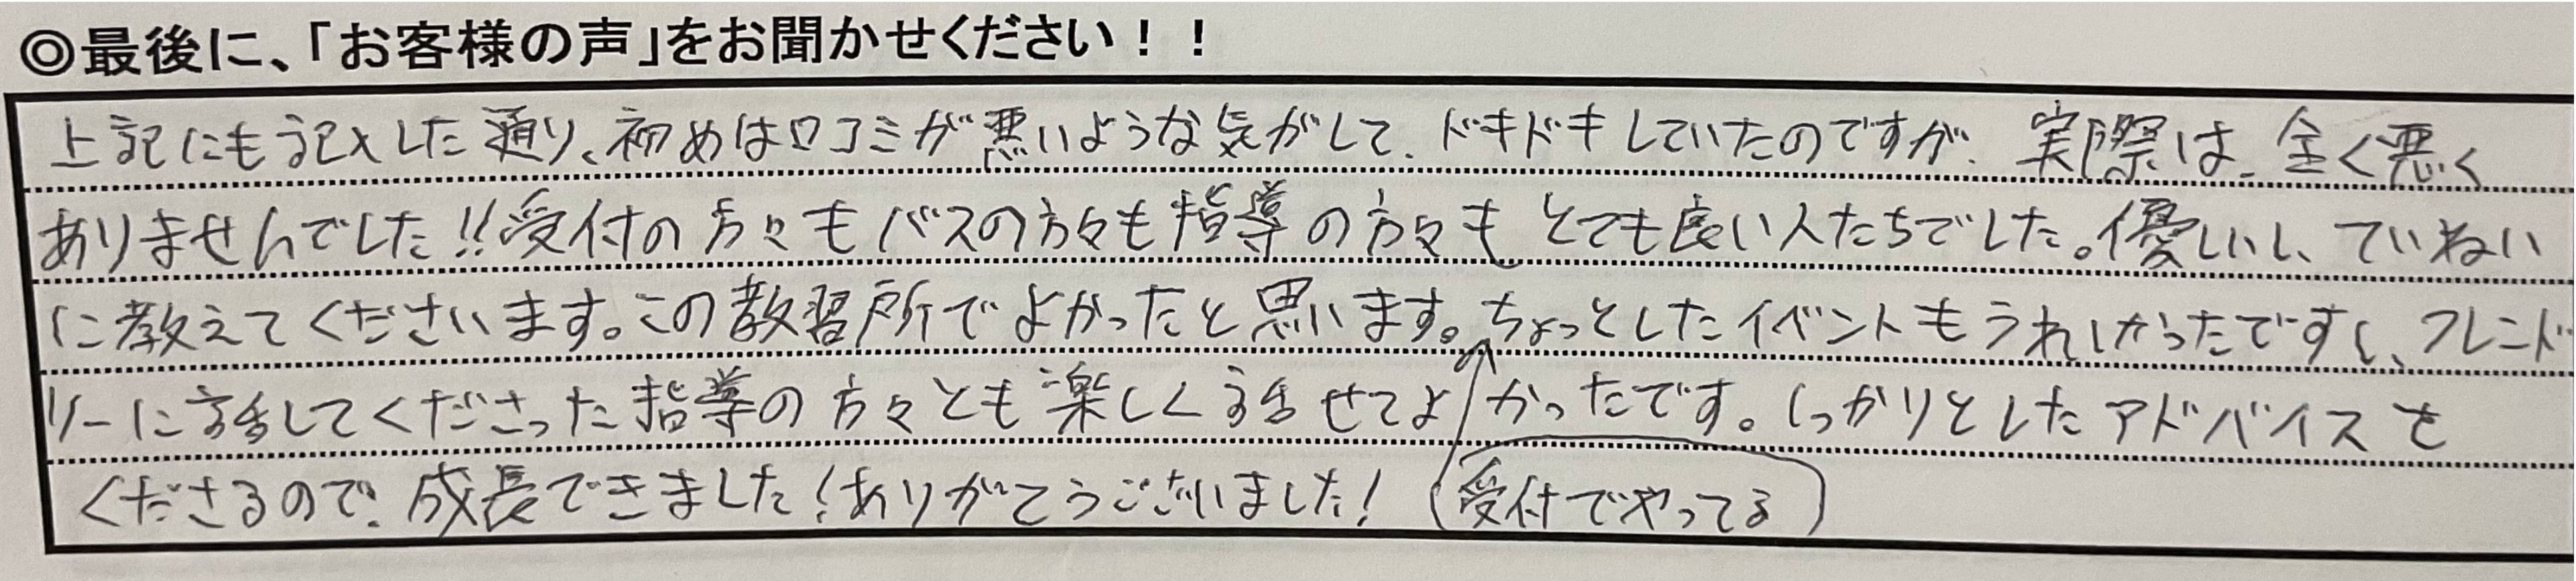 ◎最後に、「お客様の声」をお聞かせください！！
上記にも記入した通り、初めは口コミが悪いような気がして、ドキドキしていたのですが、実際は、全く悪く
ありませんでした!!受付の方々もバスの方々も指導の方々もとても良い人たちでした。優しいし、ていねい
に教えてくださいます。この教習所でよかったと思います。ちょっとしたイベントもうれしかったですし、フレンド
リーに話してくださった指導の方々とも楽しく話せてよかったです。しっかりとしたアドバイスを
くださるので、成長できました！ありがとうございました！（受付でやってる）